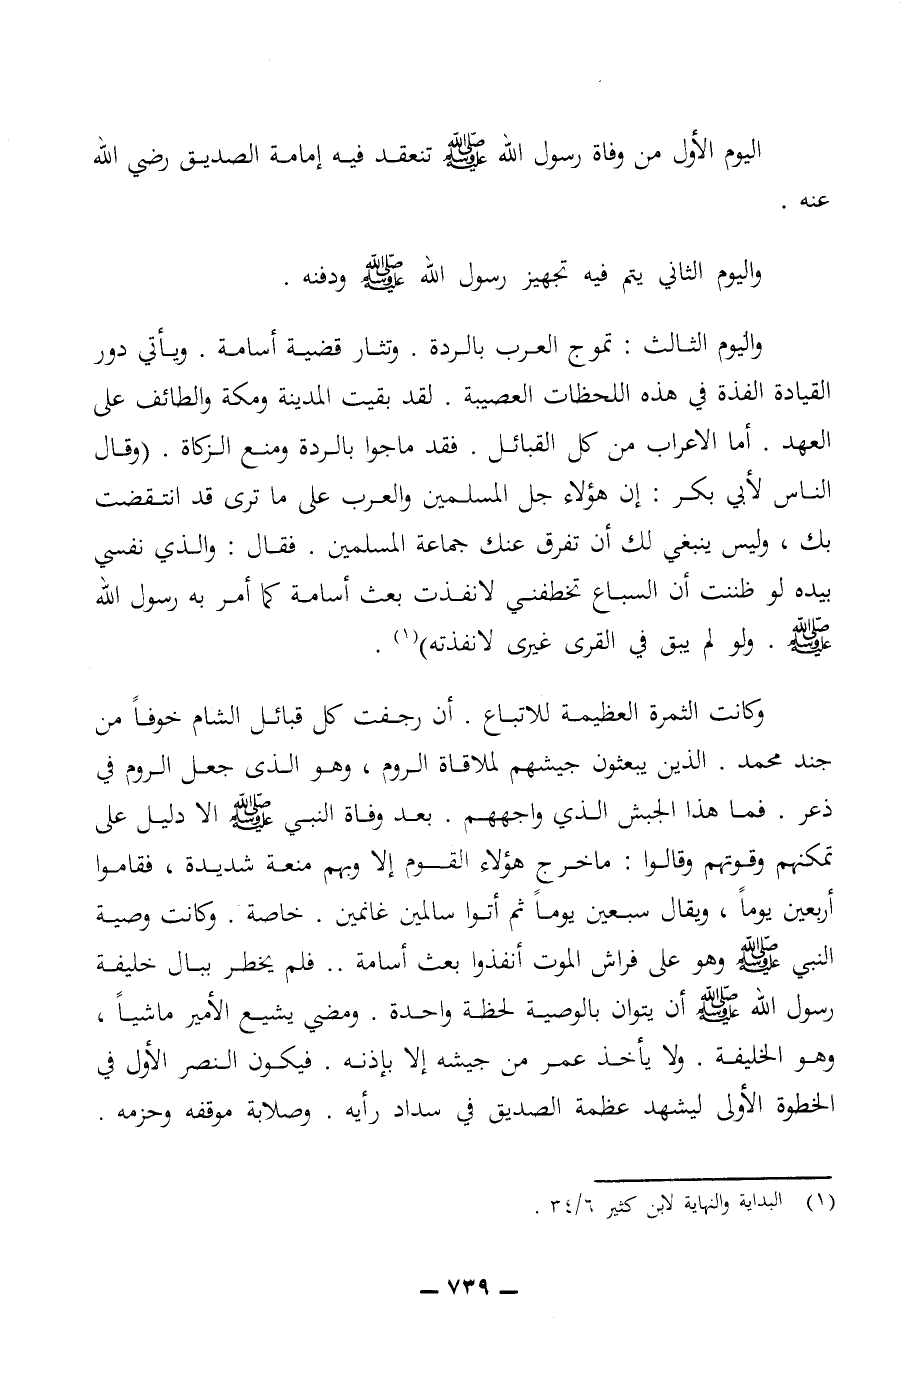 اليوم الأول من وفاة رسول الله ﷺ تنعقد فيه إمامة الصديق رضي الله
عنه .
واليوم الثاني يتم فيه تجهيز رسول الله ﷺ ودفنه .
واليوم الثالث : تموج العرب بالردة . وتثار قضية أسامة . ويأتي دور
القيادة الفذة في هذه اللحظات العصيبة . لقد بقيت المدينة ومكة والطائف على
العهد . أما الاعراب من كل القبائل . فقد ماجوا بالردة ومنع الزكاة . (وقال
الناس لأبي بكر : إن هؤلاء جل المسلمين والعرب على ما ترى قد انتقضت
بك ، وليس ينبغي لك أن تفرق عنك جماعة المسلمين . فقال : والذي نفسي
بيده لو ظننت أن السباع تخطفني لانفذت بعث أسامة كما أمر به رسول الله
ﷺ . ولو لم يبق في القرى غيرى لانفذته)(١) .
وكانت الثمرة العظيمة للاتباع . أن رجفت كل قبائل الشام خوفاً من
جند محمد . الذين يبعثون جيشهم لملاقاة الروم ، وهو الذى جعل الروم في
ذعر . فما هذا الجبش الذي واجههم . بعد وفاة النبي ﷺ الا دليل على
تمكنهم وقوتهم وقالوا : ماخرج هؤلاء القوم إلا وبهم منعة شديدة ، فقاموا
أربعين يوماً ، ويقال سبعين يوماً ثم أتوا سالمين غانمين . خاصة . وكانت وصية
النبي ﷺ وهو على فراش الموت أنفذوا بعث أسامة .. فلم يخطر ببال خليفة
رسول الله ﷺ أن يتوان بالوصية لحظة واحدة . ومضي يشيع الأمير ماشياً ،
وهو الخليفة . ولا يأخذ عمر من جيشه إلا بإذنه . فيكون النصر الأول في
الخطوة الأولى ليشهد عظمة الصديق في سداد رأيه . وصلابة موقفه وحزمه .
(١) البداية والنهاية لابن كثير ٣٤/٦ .
ـ ٧٣٩ ـ